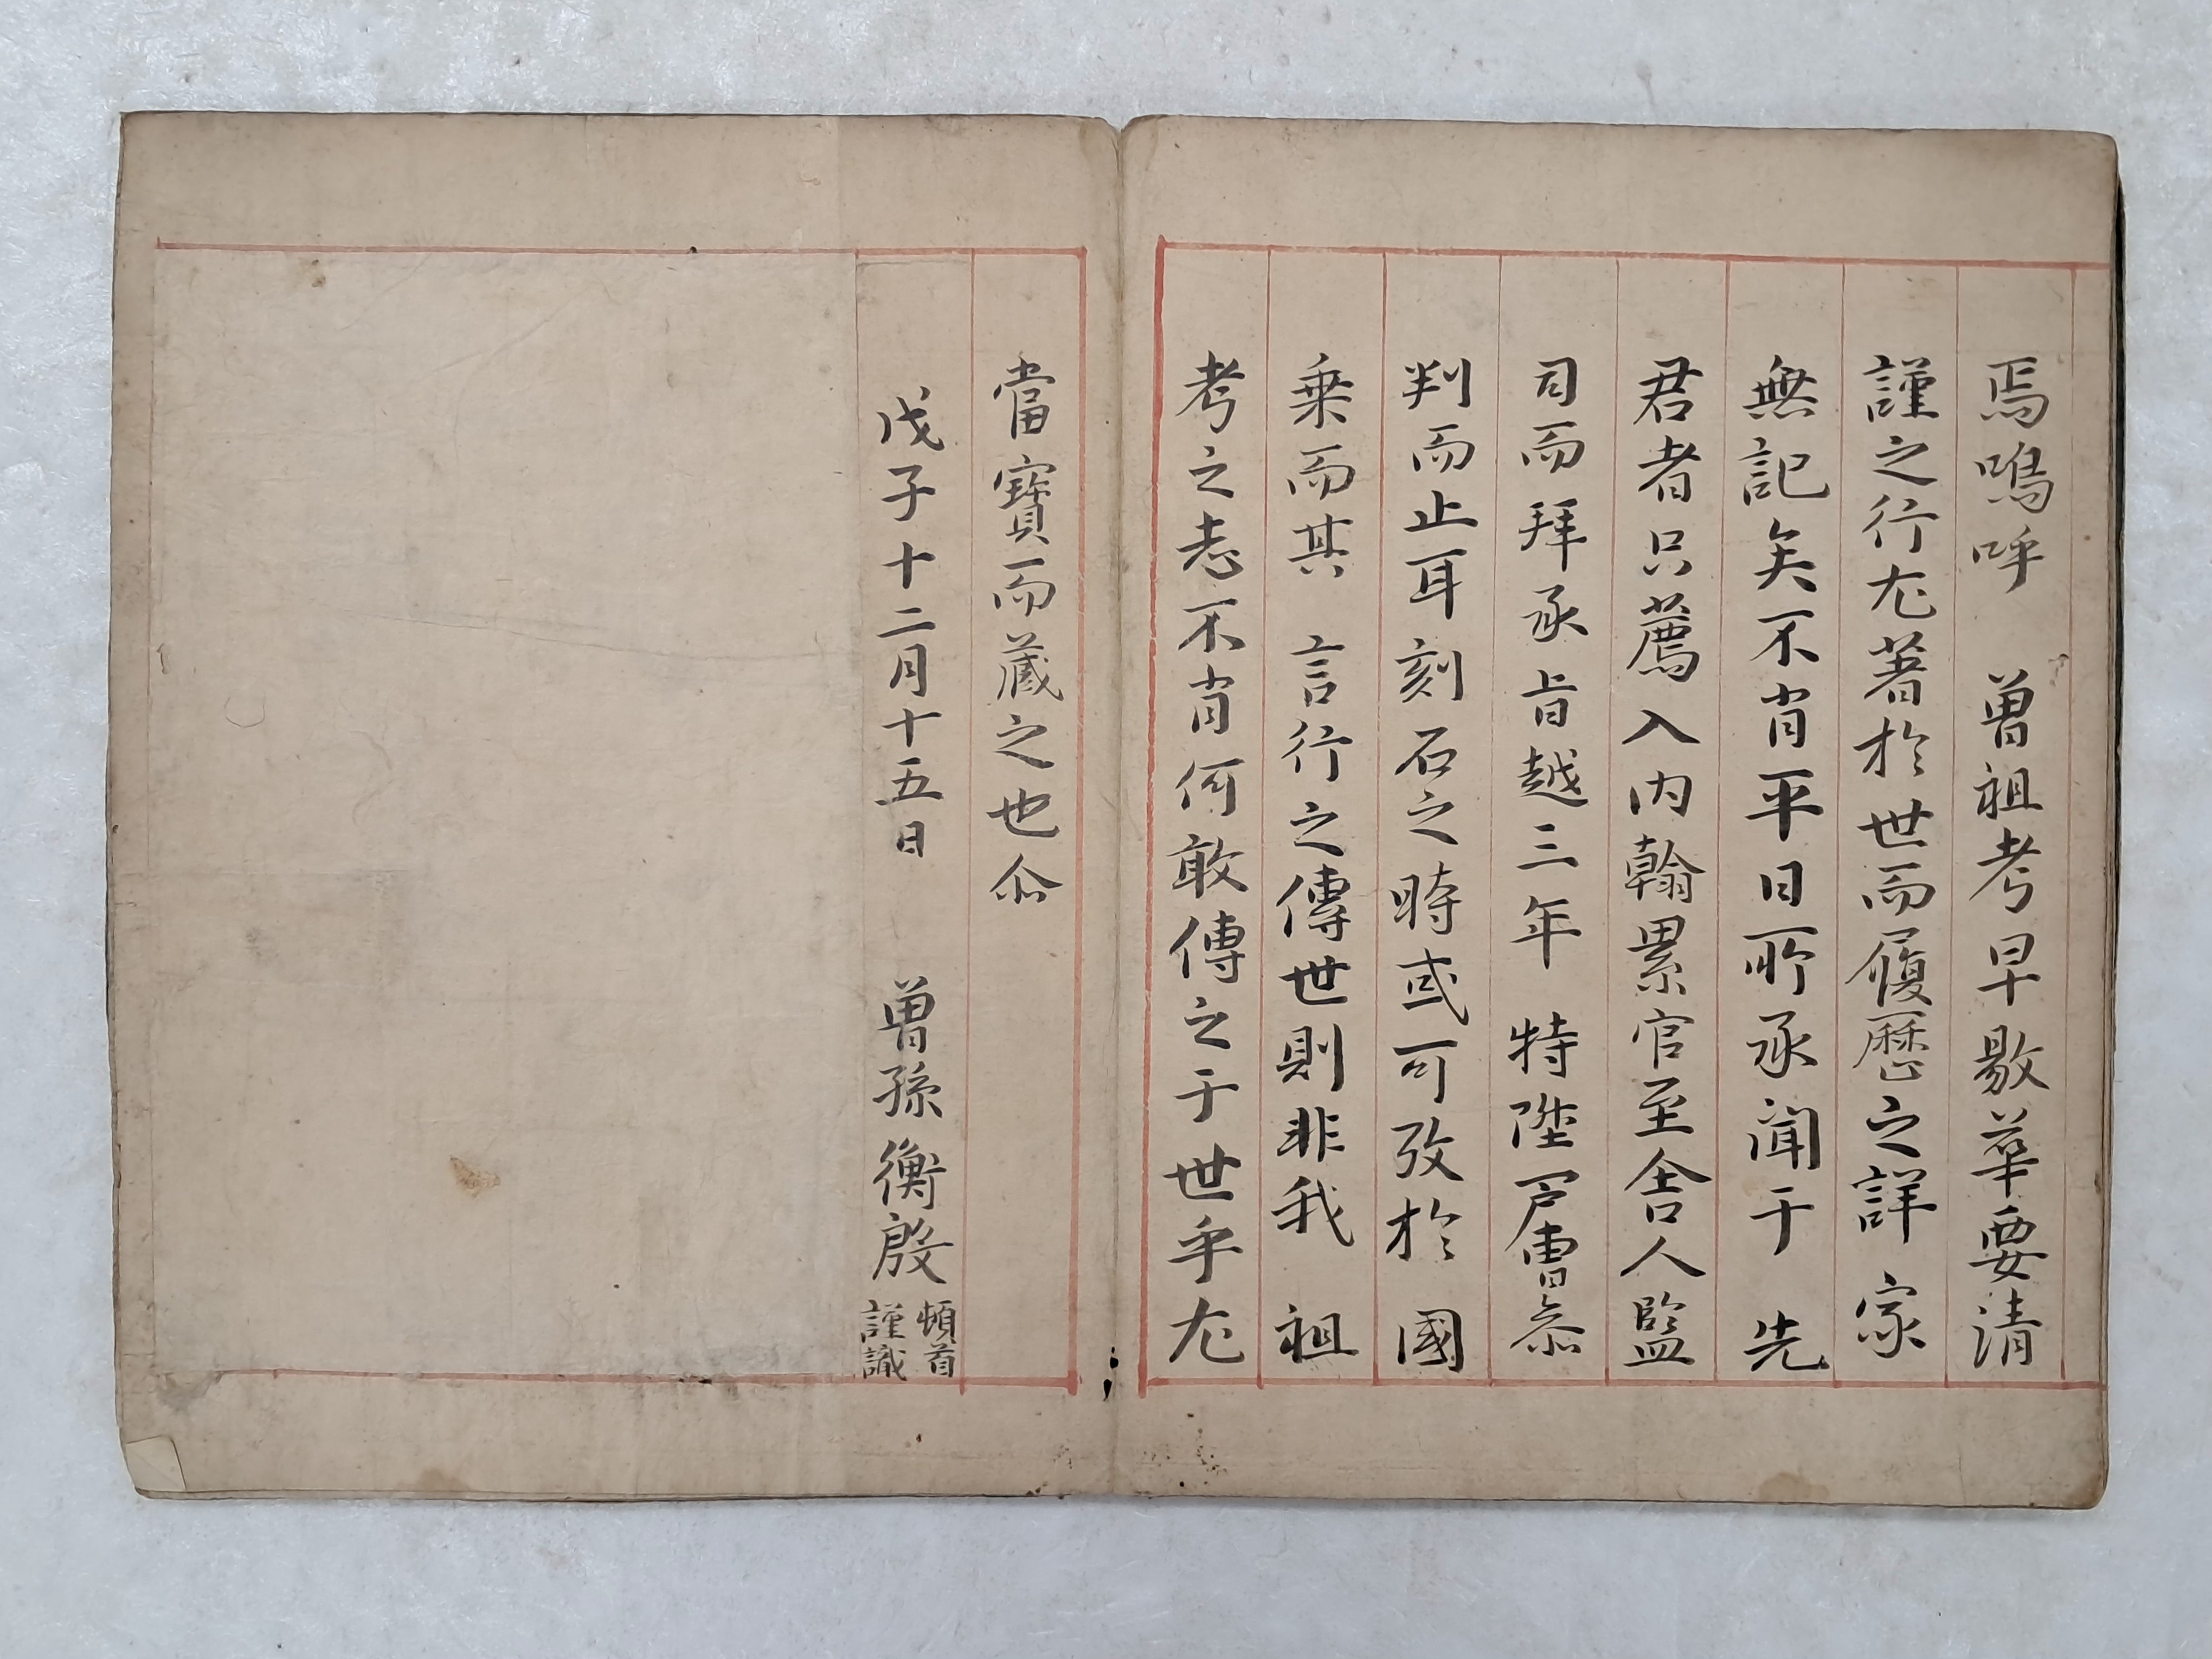 焉嗚呼 曾祖考早敭華要清
謹之行尤著於世而履歷之詳 家
無記矣不肖平日所承聞于 先
君者只薦入內翰累官至舍人監
司而拜承旨越三年 特陞戶曹叅
判而止耳刻石之時或可攷於 國
乘而其 言行之傳世則非我 祖
考之志不肖何敢傳之于世乎尤
當寶而藏之也尒
戊子十二月十五日 曾孫衡殷頓首謹識